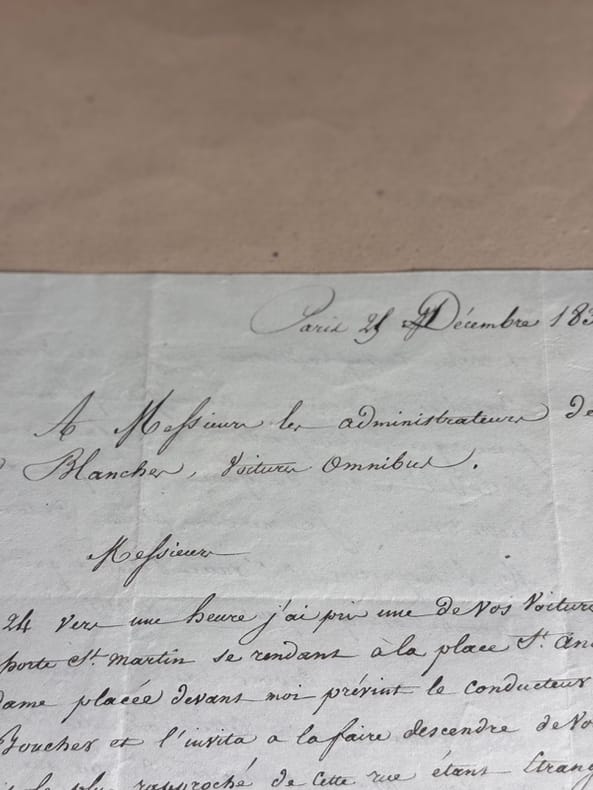 Paris 25 Décembre 183
A Messieurs les administrateurs de
Blanches, Voitures Omnibus.
Messieurs
24 vers une heure j'ai pris une de vos Voitures
porte St. Martin se rendant à la place St. An
dame placée devant moi prévint le conducteur
Boucher et l'invita a la faire descendre de vo
le plus rapproché de cette rue étant Etrang